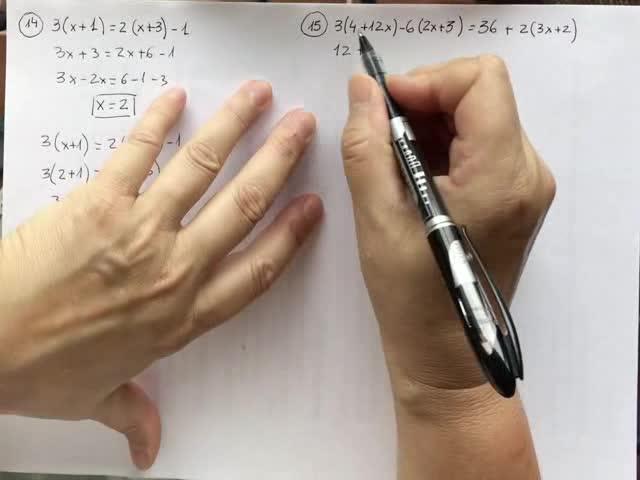 14 3(x+1)=2(x+3)-1
3x+3=2x+6-1
3x-2x=6-1-3
x=2
3(x+1)=2 -1
3(2+1)=
15 3(4+12x)-6(2x+3)=36+2(3x+2)
12